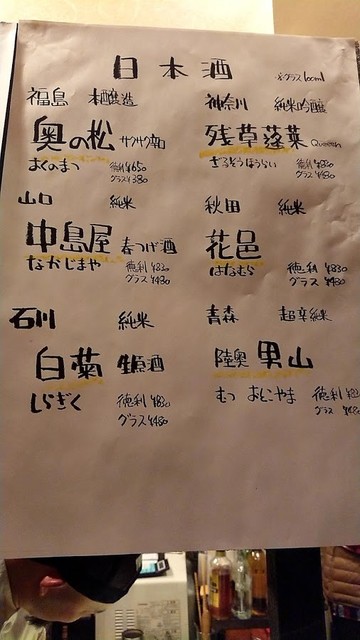 日本酒 ※グラス100ml
福島 本醸造
奥の松 サクサク辛口
おくのまつ 徳利¥650
グラス¥380
神奈川 純米吟醸
残草蓬莱 Queeen
ざるそうほうらい 徳利¥830
グラス¥480
山口 純米
中島屋 春つげ酒
なかじまや 徳利¥830
グラス¥480
秋田 純米
花邑
はなむら 徳利¥830
グラス¥480
石川 純米
白菊 生原酒
しらぎく 徳利¥830
グラス¥480
青森 超辛純米
陸奥男山
むつ おとこやま 徳利
グラス